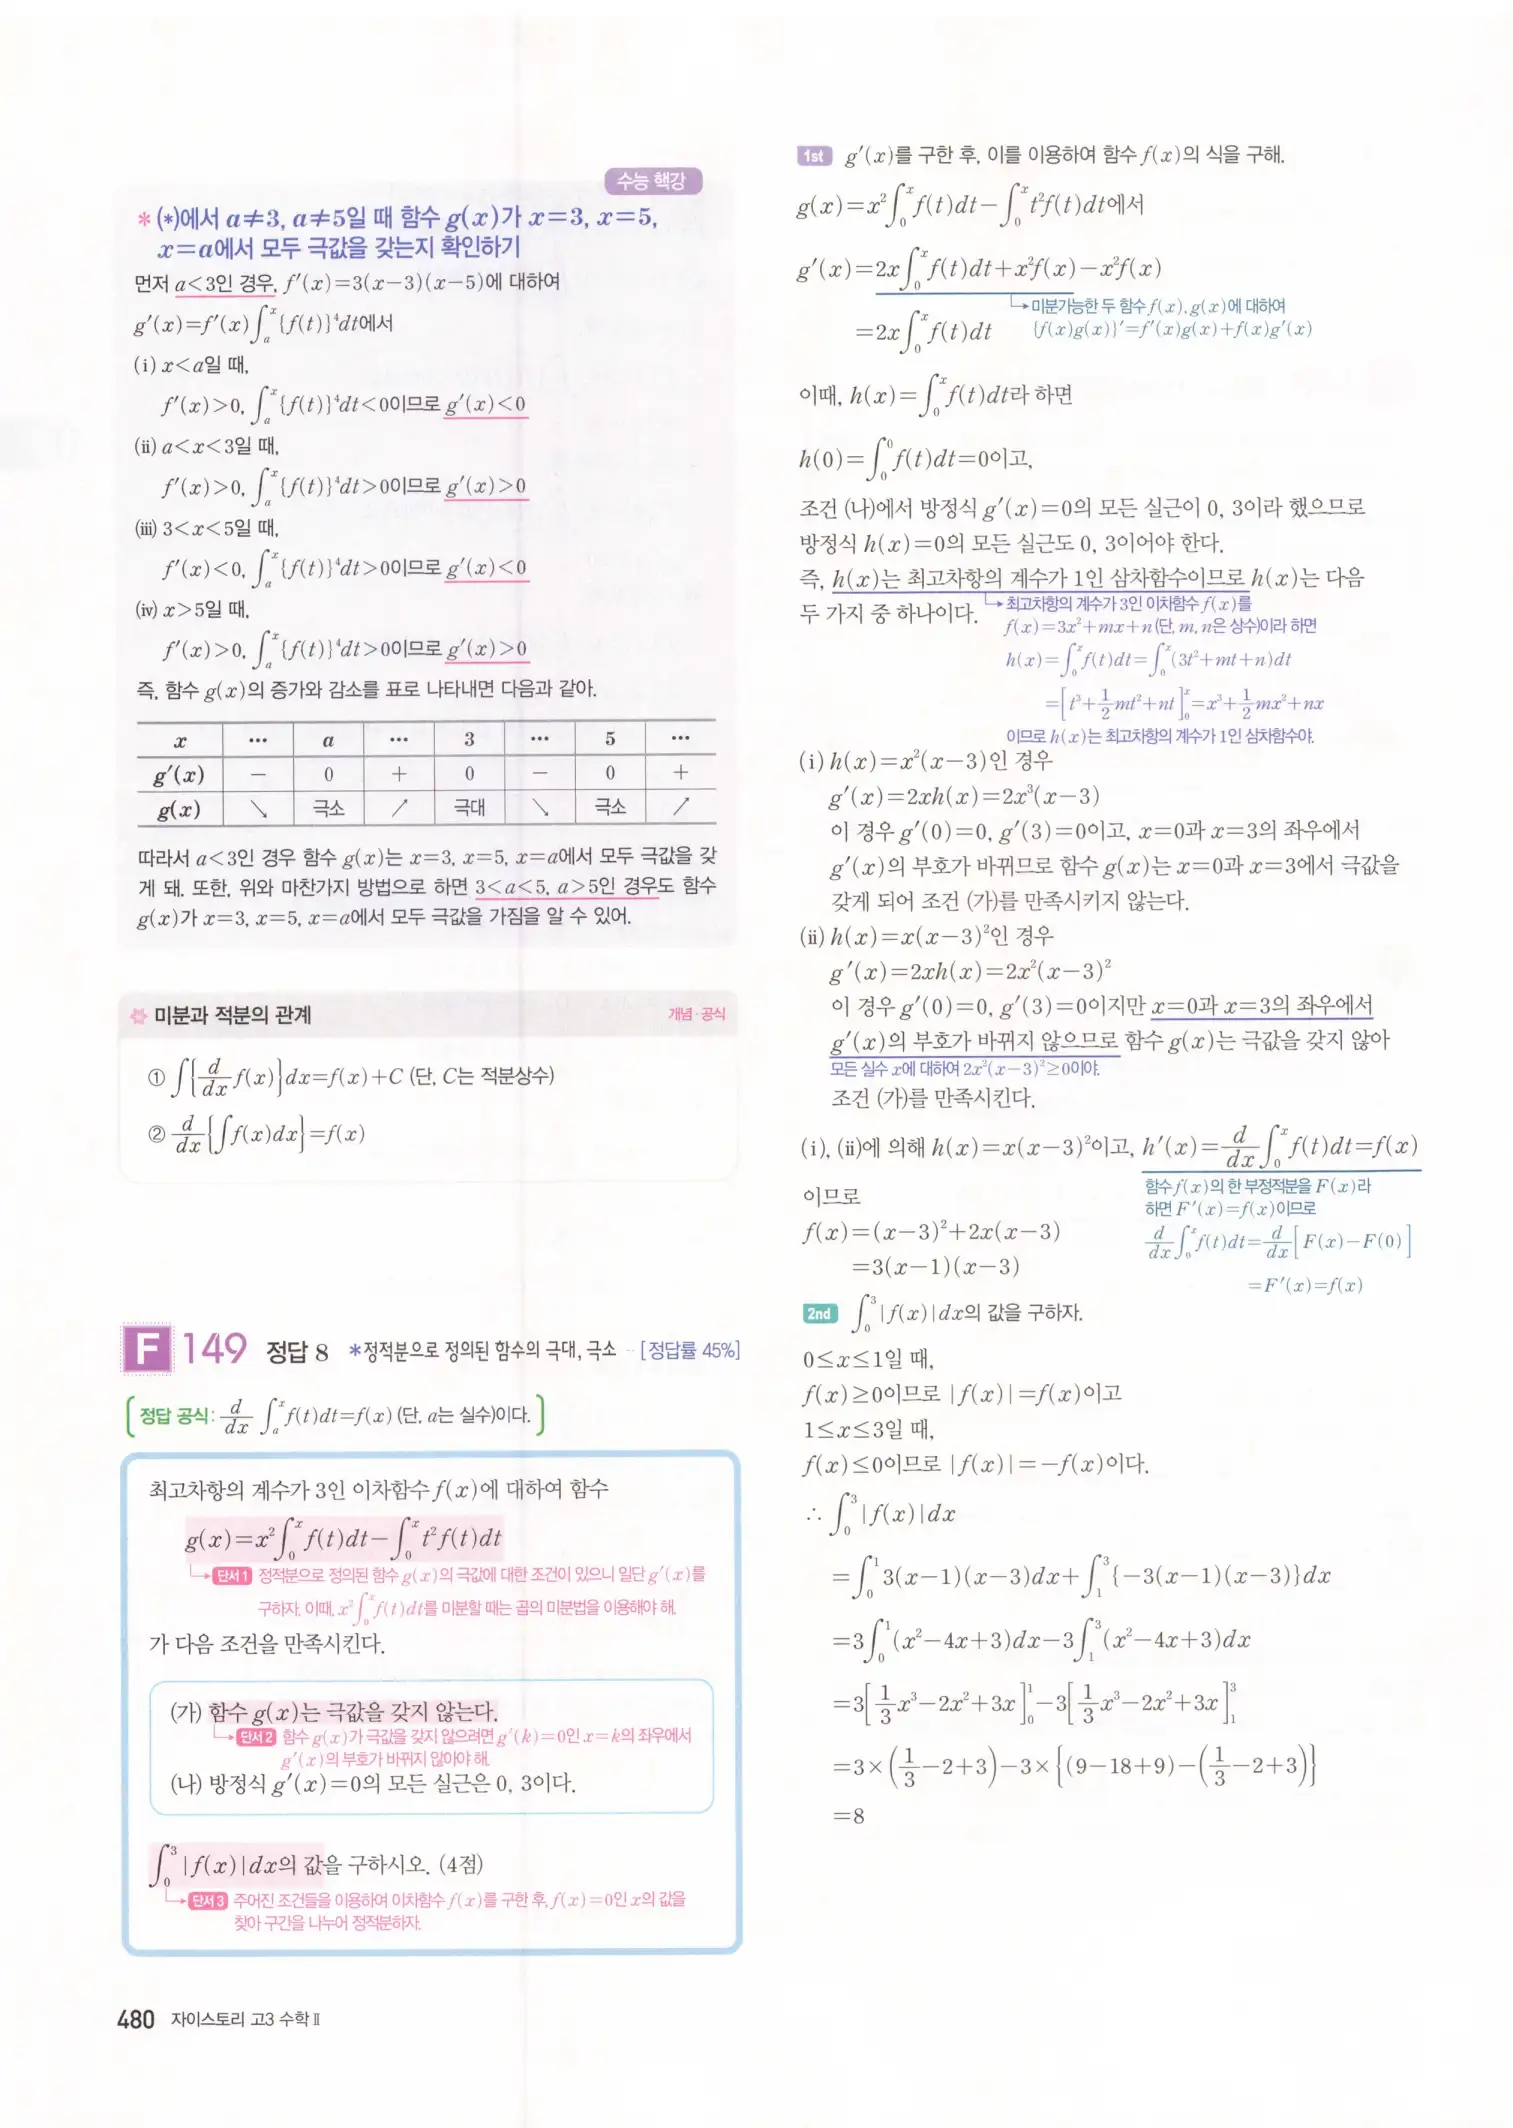 수능 핵강
* (*)에서 a≠3, a≠5일 때 함수 g(x)가 x=3, x=5,
x=a에서 모두 극값을 갖는지 확인하기
먼저 a<3인 경우, f′(x)=3(x−3)(x−5)에 대하여
g′(x)=f′(x)∫ₐˣ{f(t)}⁴dt에서
(i) x<a일 때,
f′(x)>0, ∫ₐˣ{f(t)}⁴dt<0이므로 g′(x)<0
(ii) a<x<3일 때,
f′(x)>0, ∫ₐˣ{f(t)}⁴dt>0이므로 g′(x)>0
(iii) 3<x<5일 때,
f′(x)<0, ∫ₐˣ{f(t)}⁴dt>0이므로 g′(x)<0
(iv) x>5일 때,
f′(x)>0, ∫ₐˣ{f(t)}⁴dt>0이므로 g′(x)>0
즉, 함수 g(x)의 증가와 감소를 표로 나타내면 다음과 같아.
x … a … 3 … 5 …
g′(x) − 0 + 0 − 0 +
g(x) ↘ 극소 ↗ 극대 ↘ 극소 ↗
따라서 a<3인 경우 함수 g(x)는 x=3, x=5, x=a에서 모두 극값을 갖
게 돼. 또한, 위와 마찬가지 방법으로 하면 3<a<5, a>5인 경우도 함수
g(x)가 x=3, x=5, x=a에서 모두 극값을 가짐을 알 수 있어.
미분과 적분의 관계 개념·공식
① ∫{d/dx f(x)}dx=f(x)+C (단, C는 적분상수)
② d/dx{∫f(x)dx}=f(x)
F 149 정답 8 *정적분으로 정의된 함수의 극대, 극소 ·· [정답률 45%]
[정답 공식: d/dx ∫ₐˣ f(t)dt=f(x) (단, a는 실수)이다.]
최고차항의 계수가 3인 이차함수 f(x)에 대하여 함수
g(x)=x²∫₀ˣ f(t)dt−∫₀ˣ t²f(t)dt
단서1 정적분으로 정의된 함수 g(x)의 극값에 대한 조건이 있으니 일단 g′(x)를
구하자. 이때, x²∫₀ˣ f(t)dt를 미분할 때는 곱의 미분법을 이용해야 해.
가 다음 조건을 만족시킨다.
(가) 함수 g(x)는 극값을 갖지 않는다.
단서2 함수 g(x)가 극값을 갖지 않으려면 g′(k)=0인 x=k의 좌우에서
g′(x)의 부호가 바뀌지 않아야 해.
(나) 방정식 g′(x)=0의 모든 실근은 0, 3이다.
∫₀³|f(x)|dx의 값을 구하시오. (4점)
단서3 주어진 조건들을 이용하여 이차함수 f(x)를 구한 후, f(x)=0인 x의 값을
찾아 구간을 나누어 정적분하자.
480 자이스토리 고3 수학Ⅱ
1st g′(x)를 구한 후, 이를 이용하여 함수 f(x)의 식을 구해.
g(x)=x²∫₀ˣ f(t)dt−∫₀ˣ t²f(t)dt에서
g′(x)=2x∫₀ˣ f(t)dt+x²f(x)−x²f(x)
미분가능한 두 함수 f(x), g(x)에 대하여
=2x∫₀ˣ f(t)dt {f(x)g(x)}′=f′(x)g(x)+f(x)g′(x)
이때, h(x)=∫₀ˣ f(t)dt라 하면
h(0)=∫₀⁰ f(t)dt=0이고,
조건 (나)에서 방정식 g′(x)=0의 모든 실근이 0, 3이라 했으므로
방정식 h(x)=0의 모든 실근도 0, 3이어야 한다.
즉, h(x)는 최고차항의 계수가 1인 삼차함수이므로 h(x)는 다음
두 가지 중 하나이다.
최고차항의 계수가 3인 이차함수 f(x)를
f(x)=3x²+mx+n (단, m, n은 상수)이라 하면
h(x)=∫₀ˣ f(t)dt=∫₀ˣ(3t²+mt+n)dt
=[t³+1/2mt²+nt]₀ˣ=x³+1/2mx²+nx
이므로 h(x)는 최고차항의 계수가 1인 삼차함수야.
(i) h(x)=x²(x−3)인 경우
g′(x)=2xh(x)=2x³(x−3)
이 경우 g′(0)=0, g′(3)=0이고, x=0과 x=3의 좌우에서
g′(x)의 부호가 바뀌므로 함수 g(x)는 x=0과 x=3에서 극값을
갖게 되어 조건 (가)를 만족시키지 않는다.
(ii) h(x)=x(x−3)²인 경우
g′(x)=2xh(x)=2x²(x−3)²
이 경우 g′(0)=0, g′(3)=0이지만 x=0과 x=3의 좌우에서
g′(x)의 부호가 바뀌지 않으므로 함수 g(x)는 극값을 갖지 않아
모든 실수 x에 대하여 2x²(x−3)²≥0이야.
조건 (가)를 만족시킨다.
(i), (ii)에 의해 h(x)=x(x−3)²이고, h′(x)=d/dx∫₀ˣ f(t)dt=f(x)
이므로
함수 f(x)의 한 부정적분을 F(x)라
하면 F′(x)=f(x)이므로
d/dx∫₀ˣ f(t)dt=d/dx[F(x)−F(0)]
=F′(x)=f(x)
f(x)=(x−3)²+2x(x−3)
=3(x−1)(x−3)
2nd ∫₀³|f(x)|dx의 값을 구하자.
0≤x≤1일 때,
f(x)≥0이므로 |f(x)|=f(x)이고
1≤x≤3일 때,
f(x)≤0이므로 |f(x)|=−f(x)이다.
∴ ∫₀³|f(x)|dx
=∫₀¹3(x−1)(x−3)dx+∫₁³{−3(x−1)(x−3)}dx
=3∫₀¹(x²−4x+3)dx−3∫₁³(x²−4x+3)dx
=3[1/3x³−2x²+3x]₀¹−3[1/3x³−2x²+3x]₁³
=3×(1/3−2+3)−3×{(9−18+9)−(1/3−2+3)}
=8